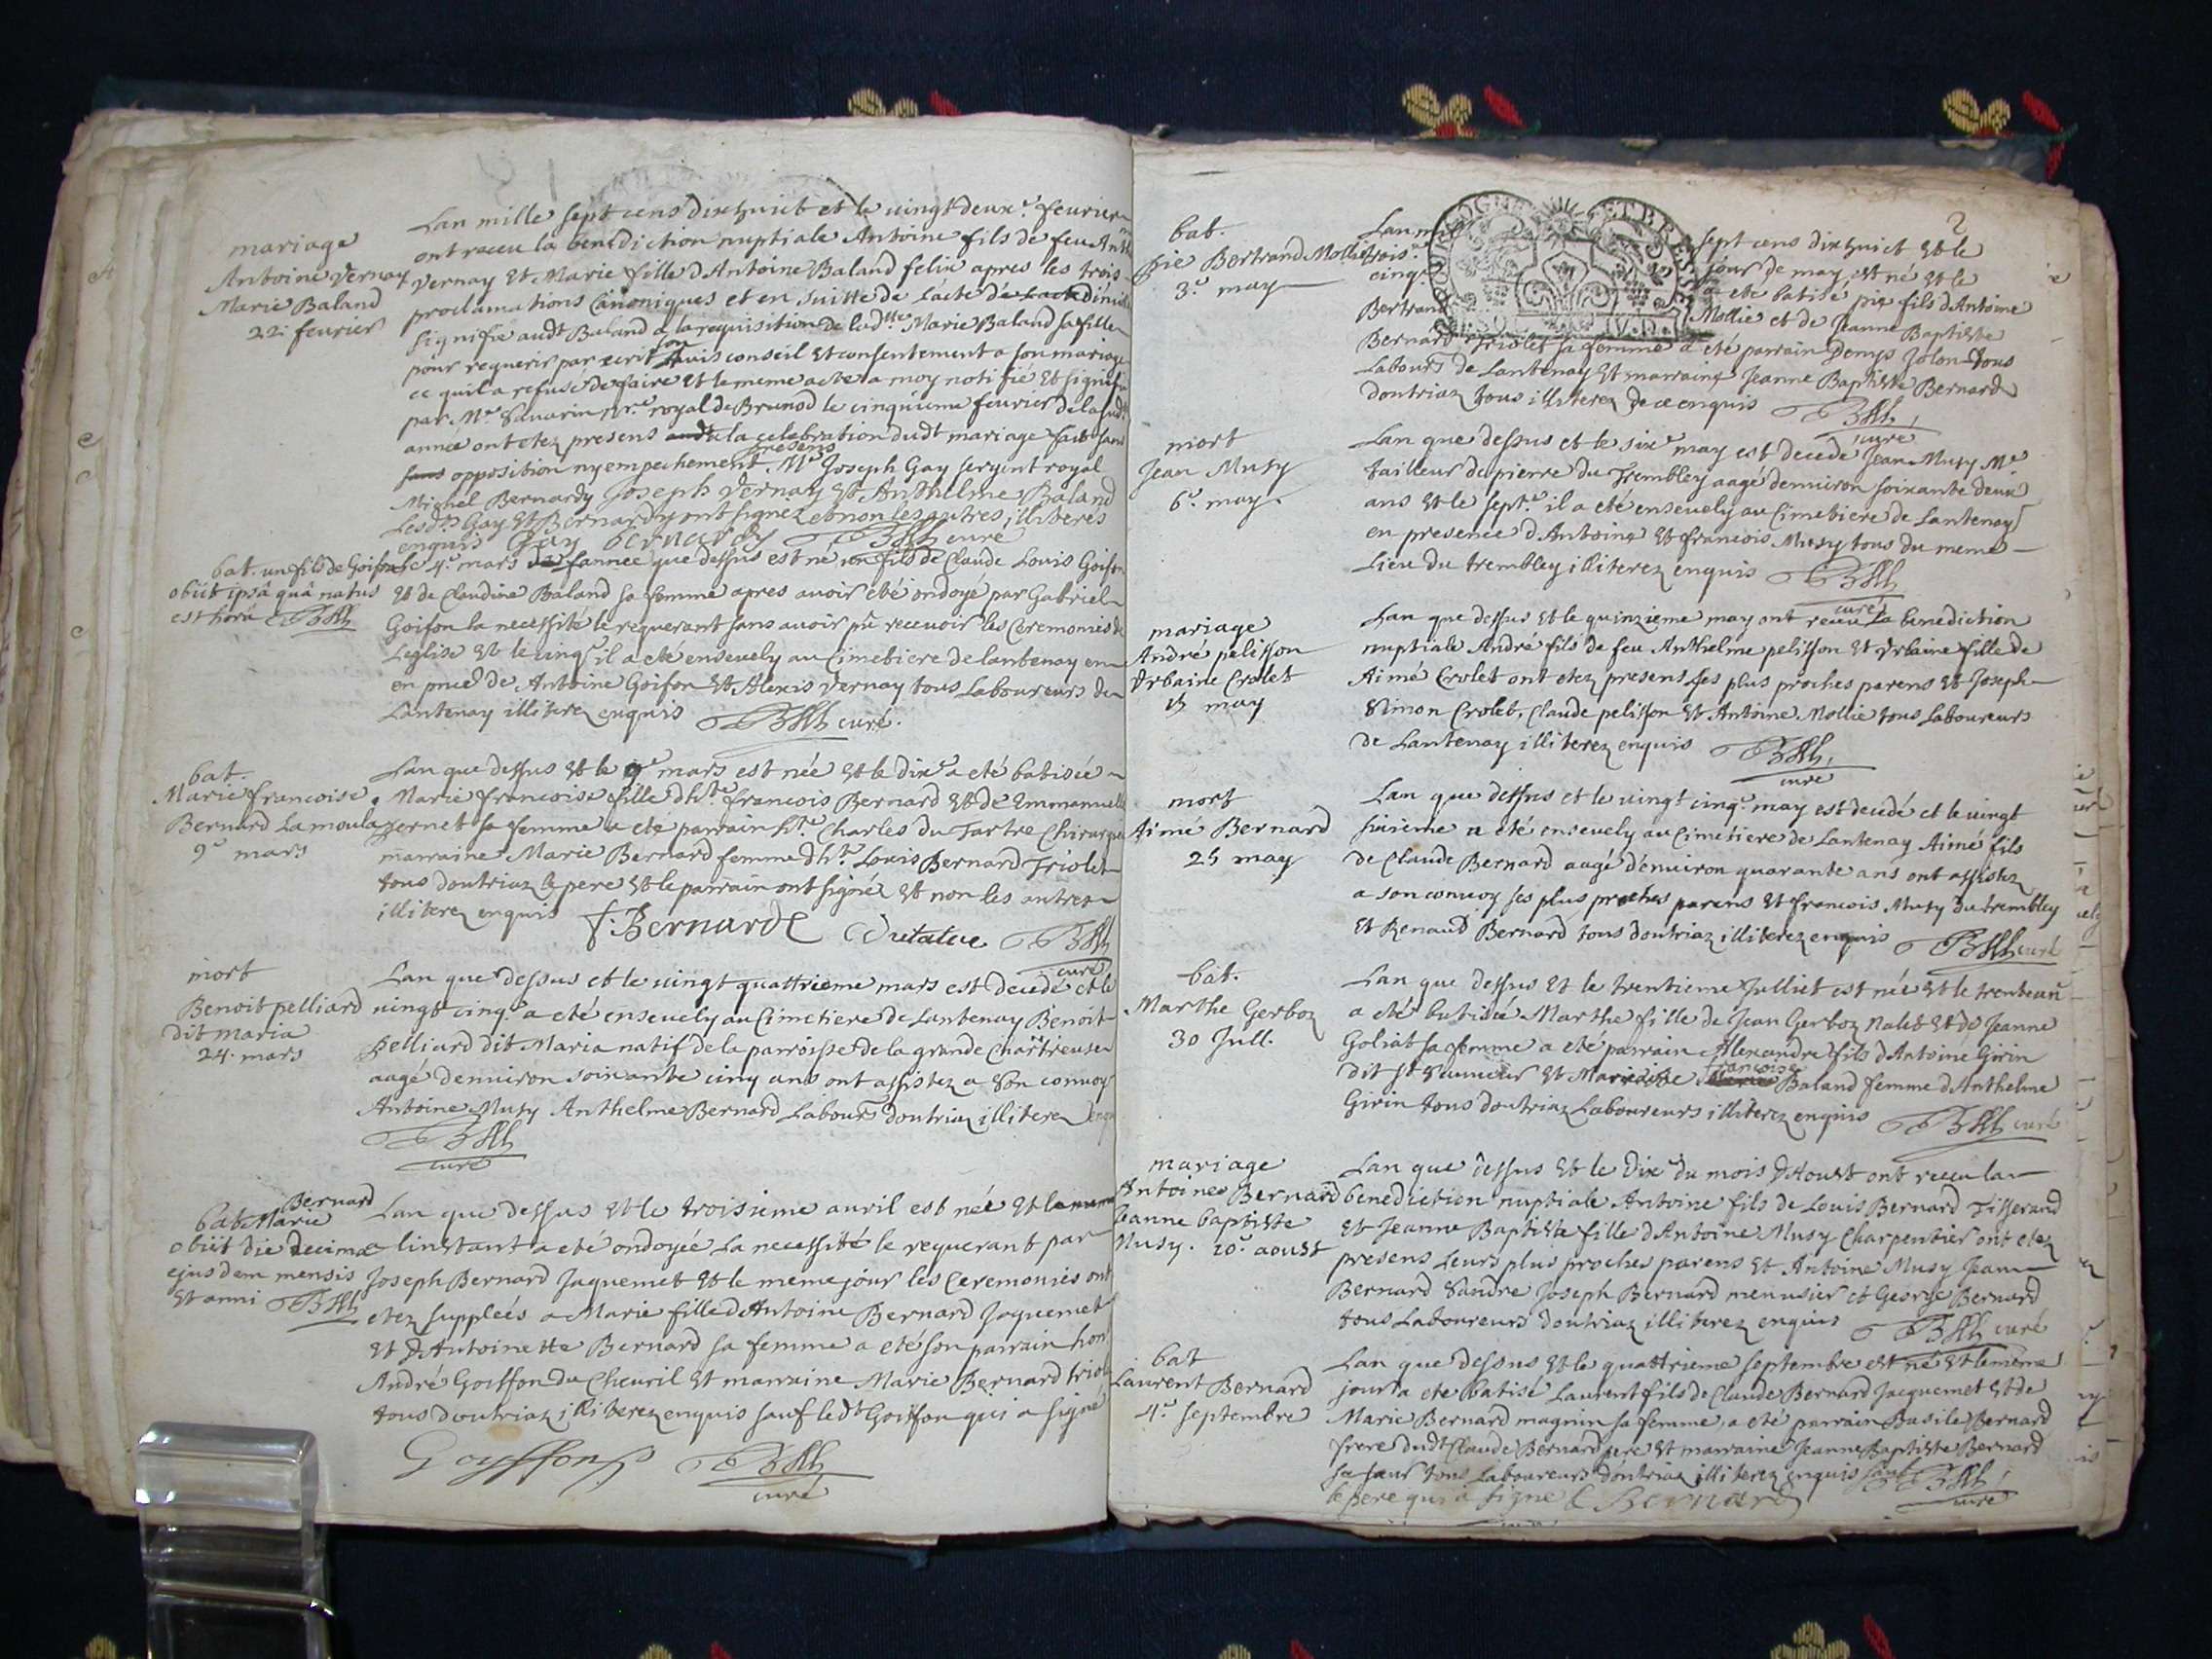 mariage
Antoine Vernay
Marie Baland
22. feurier
Lan mille sept cens dixhuict et le uingtdeux.e feurier
ont receu la benediction nuptiale Antoine fils de feu Anth
Vernay et Marie fille d'Antoine Baland felix apres les trois
proclamations Canoniques et en suitte de lacte de lacte
signifié audt Baland a la requisition de ladtte Marie Baland sa fille
pour requerir par ecrit son auis conseil et consentement a son mariage
ce quil a refusé de faire et le meme acte a moy notifié et signifié
par Me Sauarin nre royal de Brenod le cinquieme feurier de lad
année ont etez presens a la celebration dudt mariage fait sans
sans opposition ny empechement. presens Me Joseph Gay sergint royal
Michel Bernardy Joseph Vernay et Anthelme Baland
Lesdts Gay et Bernardy ont signez et non les autres illiterés
enquis Gay Bernardy curé
bat. un fils de Goifon
obiit ipsâ quâ natus
est horâ
le 4.e mars lannée que dessus est né un fils de Claude Louis Goifon
et de Claudine Baland sa femme apres auoir eté ondoyé par Gabriel
Goifon la necessité le requerant sans auoir pû receuoir les Ceremonies de
Leglise et le cinq.e il a eté enseuely au Cimetiere de lantenay en
en pnce de Antoine Goifon et Alexis Vernay tous Laboureurs de
Lantenay illiterez enquis curé.
bat.
Marie francoise
Bernard Lamoula
9.e mars
Lan que dessus et le 9e mars est née et le dix.e a eté batisée
Marie francoise fille dh.te francois Bernard et de Emmanuelle
Jernet sa femme a eté parrain h.te Charles du Tartre Chirurgien
marraine Marie Bernard femme dh.te Louis Bernard Triolet
tous doutriaz le pere et le parrain ont signé et non les autres
illiterez enquis f. Bernard Dutartre
curé
mort
Benoit pelliard
dit maria
24. mars
Lan que dessus et le uingt quattrieme mars est decedé et le
uingt cinq.e a eté enseuely au Cimetiere de Lantenay Benoit
Pelliard dit Maria natif de la parroisse de la grande Chartreuse
aagé denuiron soixante cinq ans ont assistez a son conuoy
Antoine Musy Anthelme Bernard Labours doutriaz illiterez enq
curé
Bernard
bat. Marie
obiit die decimâ
ejusdem mensis
et anni
Lan que dessus et le troisieme auril est née et le meme
linstant a eté ondoyée La necessité le requerant par
Joseph Bernard Jaquemet et le meme jour les Ceremonies ont
etez suppleés a Marie fille d'Antoine Bernard Jaquemet
et d'Antoinette Bernard sa femme a eté son parrain hon
André Goiffon du Cheuril et marraine Marie Bernard triol
tous doutriaz illiterez enquis sauf le dt Goiffon qui a signé
Goyffon
curé
2
bat.
pie Bertrand Mollie
3.e may
Lan mil sept cens dixhuict et le
trois.e jour de may est né et le
cinq.e a ete batisé pie fils d'Antoine
Bertrand Mollie et de Jeanne Baptiste
Bernard Triolet sa femme a eté parrain Denys Jolon tous
Labours de Lantenay et marraine Jeanne Baptiste Bernard
doutriaz tous illiterez de ce enquis
curé
mort
Jean Musy
6.e may.
Lan que dessus et le six.e may est decedé Jean Musy Me
tailleur de pierre du Trembley aagé denuiron soixante deux
ans et le sept.e il a eté enseuely au Cimetiere de Lantenay
en presence d'Antoine et francois Musy tous du meme
Lieu du trembley illiterez enquis
curé
mariage
André pelisson
Urbaine Crolet
15 may
Lan que dessus et le quinzieme may ont receu la benediction
nuptiale André fils de feu Anthelme pelisson et Urbaine fille de
Aimé Crolet ont etez presens Les plus proches parens et Joseph
Simon Crolet, Claude pelisson et Antoine Mollie tous Laboureurs
de Lantenay illiterez enquis
curé
mort
Aimé Bernard
25 may
Lan que dessus et le uingt cinq.e may est decedé et le uingt
sixieme a eté enseuely au Cimetiere de Lantenay Aimé fils
de Claude Bernard aagé denuiron quarante ans ont assistez
a son conuoy ses plus proches parens et francois Musy du trembley
et Renaud Bernard tous doutriaz illiterez enquis curé
bat.
Marthe Gerboz
30 Jull.
Lan que dessus et le trentieme Julliet est née et le trenteun
a eté batisée Marthe fille de Jean Gerboz Nalet et de Jeanne
Goliat sa femme a eté parrain Alexandre fils d'Antoine Girin
dit st Sauueur et Marraine francoise Baland femme d'Anthelme
Girin tous doutriaz Laboureurs illiterez enquis curé
mariage
Antoine Bernard
Jeanne baptiste
Musy. 10.e aoust
Lan que dessus et le dix.e du mois d'Aoust ont receu la
benediction nuptiale Antoine fils de Louis Bernard Tisserand
et Jeanne Baptiste fille d'Antoine Musy Charpentier ont etez
presens Leurs plus proches parens et Antoine Musy Jean
Bernard Sandre Joseph Bernard menusier et George Bernard
tous Laboureurs doutriaz illiterez enquis curé
bat
Laurent Bernard
4.e septembre
Lan que dessus et le quattrieme septembre est né et le meme
jour a ete batisé Laurent fils de Claude Bernard Jacquemet et de
Marie Bernard magnin sa femme, a eté parrain Basile Bernard
frere dudt Claude Bernard pere et marraine Jeanne Baptiste Bernard
sa saeur tous Laboureurs doutriaz illiterez enquis sauf
le pere qui a signé C Bernard curé